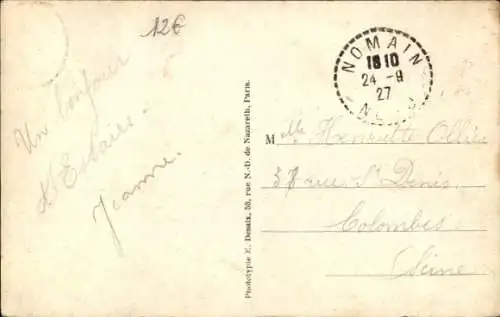 12€
Un bonjour
d'Estaires.
Jeanne.
Phototypie E. Desaix, 58, rue N.-D. de Nazareth, Paris.
NOMAIN
1810
24 -9
27
NORD
Mlle Henriette Ollier
37 rue St Denis,
Colombes
Seine